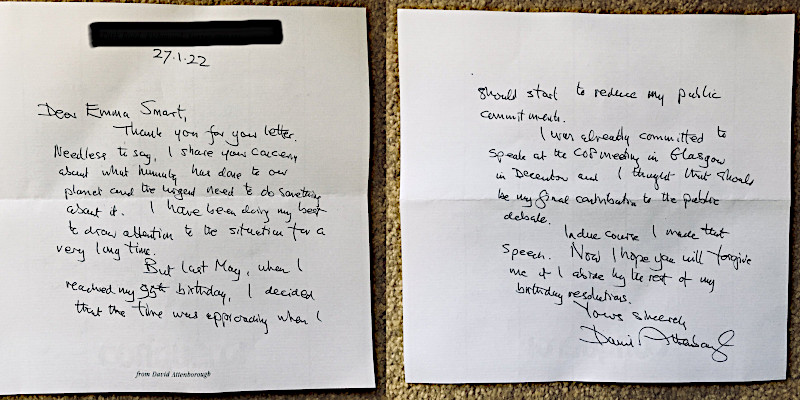 27.1.22
Dear Emma Smart,
Thank you for your letter.
Needless to say, I share your concern
about what humanity has done to our
planet and the urgent need to do something
about it. I have been doing my best
to draw attention to the situation for a
very long time.
But last May, when I
reached my 95th birthday, I decided
that the time was approaching when I
from David Attenborough
should start to reduce my public
commitments.
I was already committed to
speak at the COP meeting in Glasgow
in December and I thought that should
be my final contribution to the public
debate.
In due course I made that
speech. Now I hope you will forgive
me if I abide by the rest of my
birthday resolutions.
Yours sincerely
David Attenborough